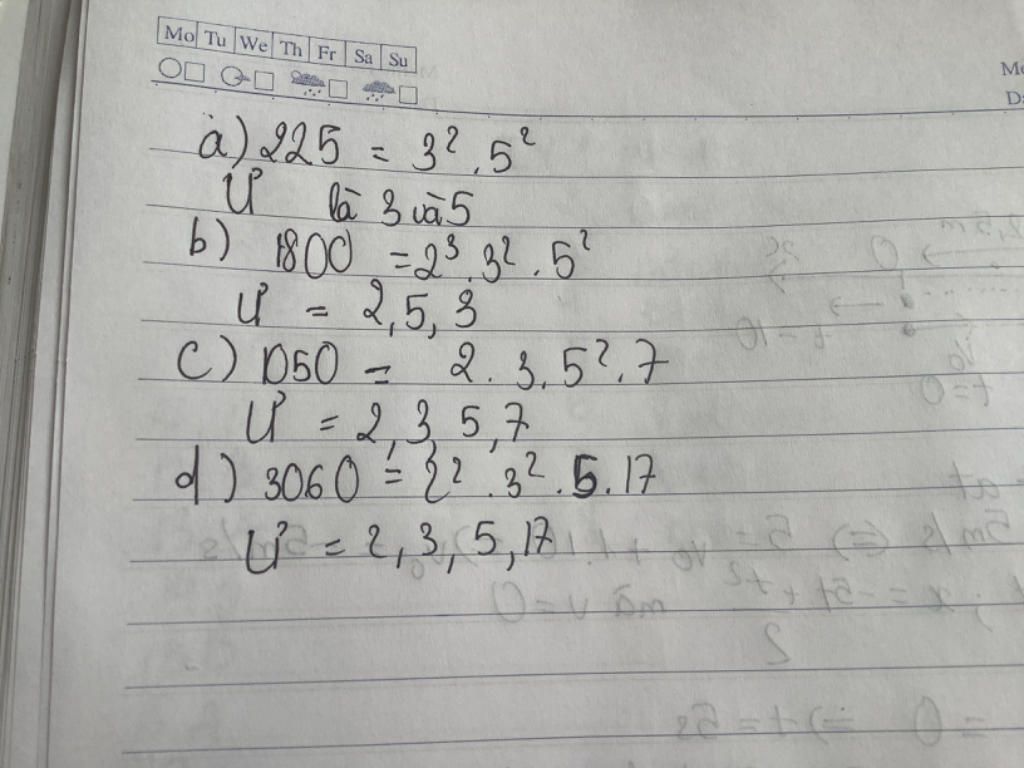 Mo Tu We Th Fr Sa Su
a) 225 = 3². 5²
Ư là 3 và 5
b) 1800 = 2³. 3² . 5²
Ư = 2, 5, 3
c) 1050 = 2 . 3 . 5² . 7
Ư = 2, 3, 5, 7
d) 3060 = 2² . 3² . 5 . 17
Ư = 2, 3, 5, 17